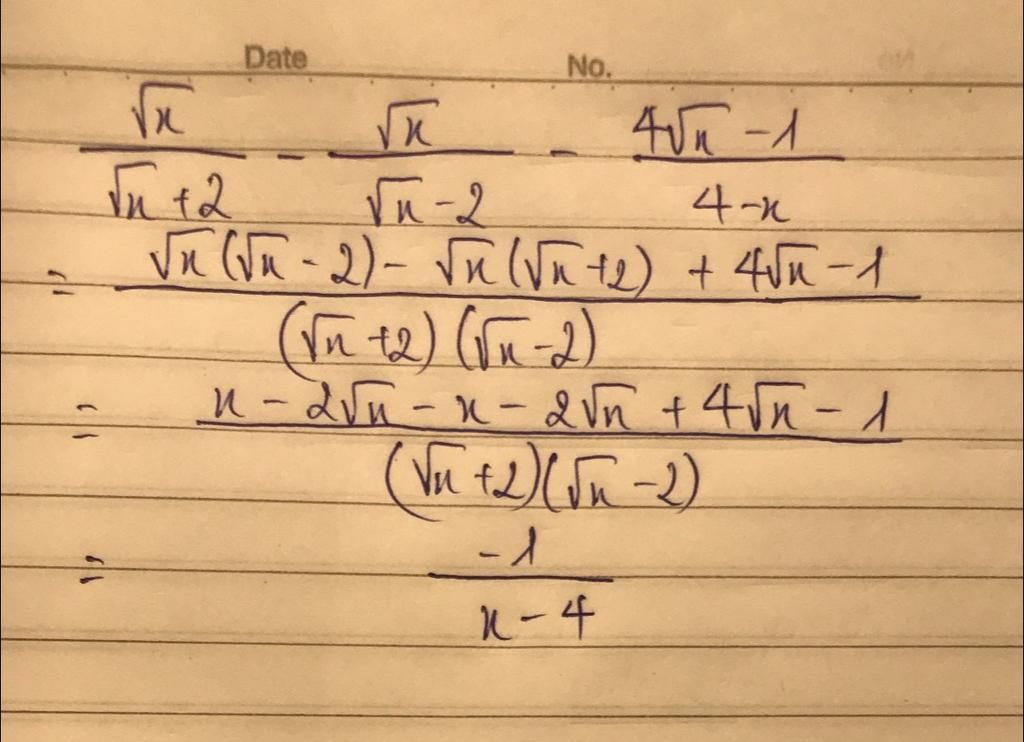 Date No.
√x/(√x + 2) - √x/(√x - 2) - (4√x - 1)/(4 - x)
= (√x(√x - 2) - √x(√x + 2) + 4√x - 1)/((√x + 2)(√x - 2))
= (x - 2√x - x - 2√x + 4√x - 1)/((√x + 2)(√x - 2))
= -1/(x - 4)